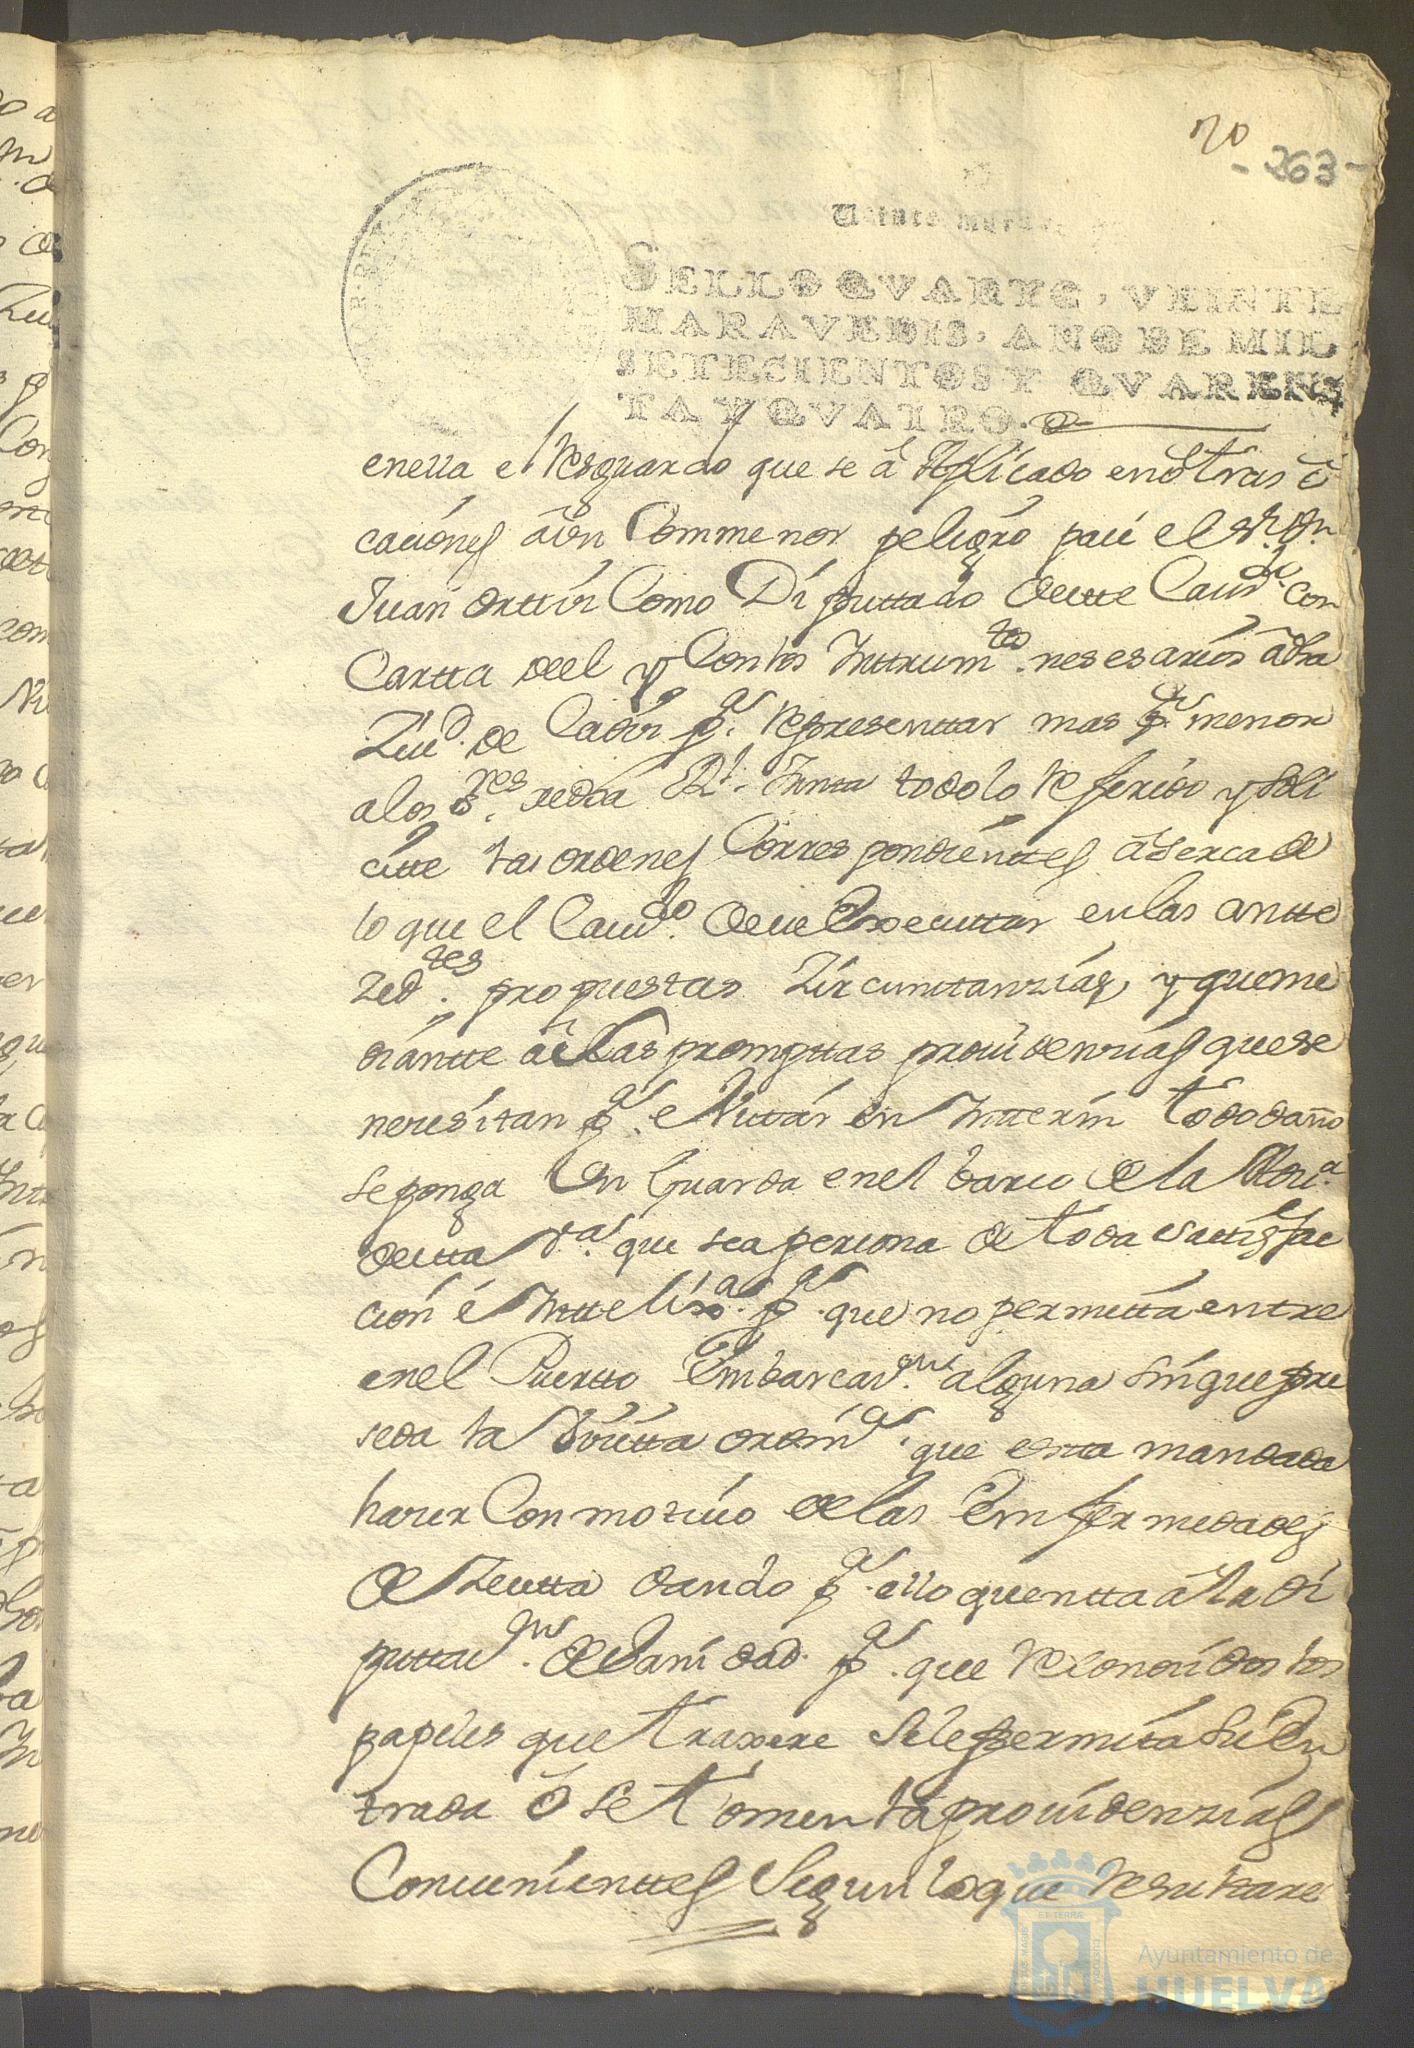 70
- 263 -
Veinte marave
SELLO QVARTO, VEINTE
MARAVEDIS, AÑO DE MIL
SETECIENTOS Y QVAREN
TA Y QVATRO.
enella el Resguardo que se á Aplicado en otras o
caciónes aun Commenor peligro pase el Sr. Dn.
Juan orttiz Como Diputtado deeste Cavdo. con
Cartta deel y Conlos Inttrumtos. nesesarios âdha
Ziud. de Cadiz pa. Representtar mas pr. menor
alos Sres. dedha Rl. Junta todolo Referido y Soli
citte las ordenes Correspondienttes âserca de
lo que el Cavdo. deve Executtar enlas antte
Zedtes. propuestas Zircunstanzias, y queme
diantte âlas prompttas providenzias quese
neresitan pa. eVittar en Intterin tododaño
seponga Un Guarda enel barco de la
destta Va. que seapersona de toda sattisfac
ción é Inttelixa. pa. que no permitta entre
enel Puertto Embarcaon. alguna sinquepre
seda la Vicitta ordina. que esta mandada
hacer Con motivo delas Emfermedades
de Zeutta dando pa. ello quentta â la Di
puttaon. deSanidad pa. que Reconocidos los
papeles que traxere Selepermita su En
trada ô se tomen las providenzias
Convenienttes Segun loque Resultare
Ayuntamiento de
HUELVA